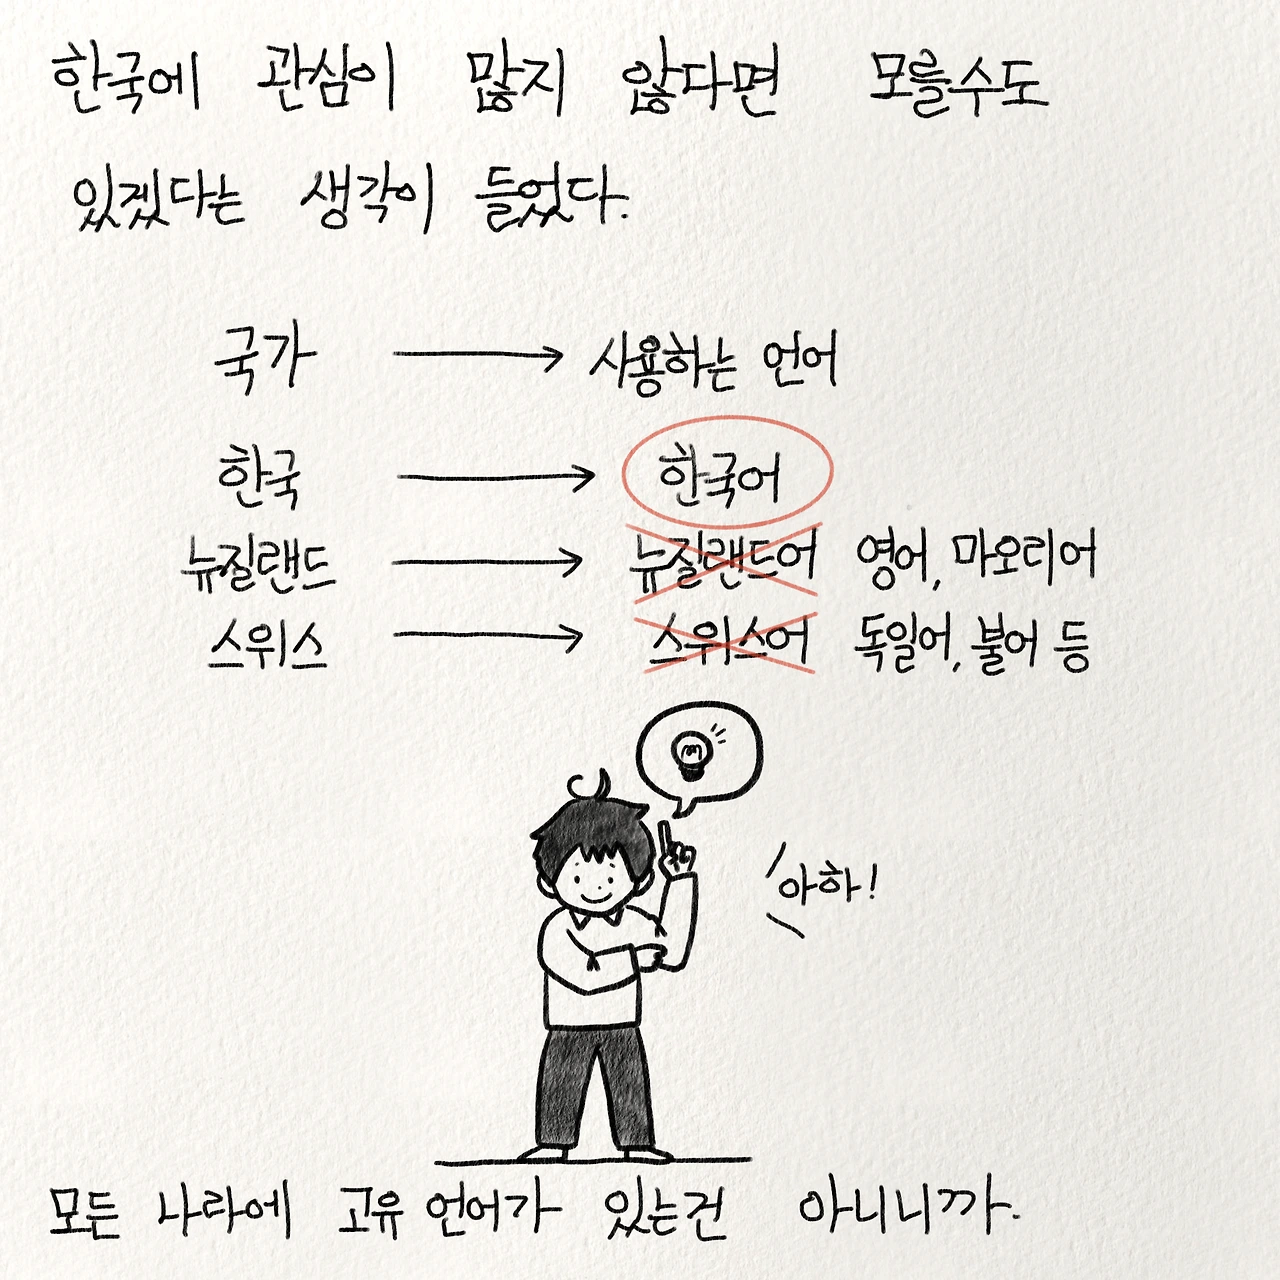 한국에 관심이 많지 않다면 모를수도
있겠다는 생각이 들었다.
국가 → 사용하는 언어
한국 → 한국어
뉴질랜드 → 뉴질랜드어 영어, 마오리어
스위스 → 스위스어 독일어, 불어 등
아하!
모든 나라에 고유 언어가 있는건 아니니까.